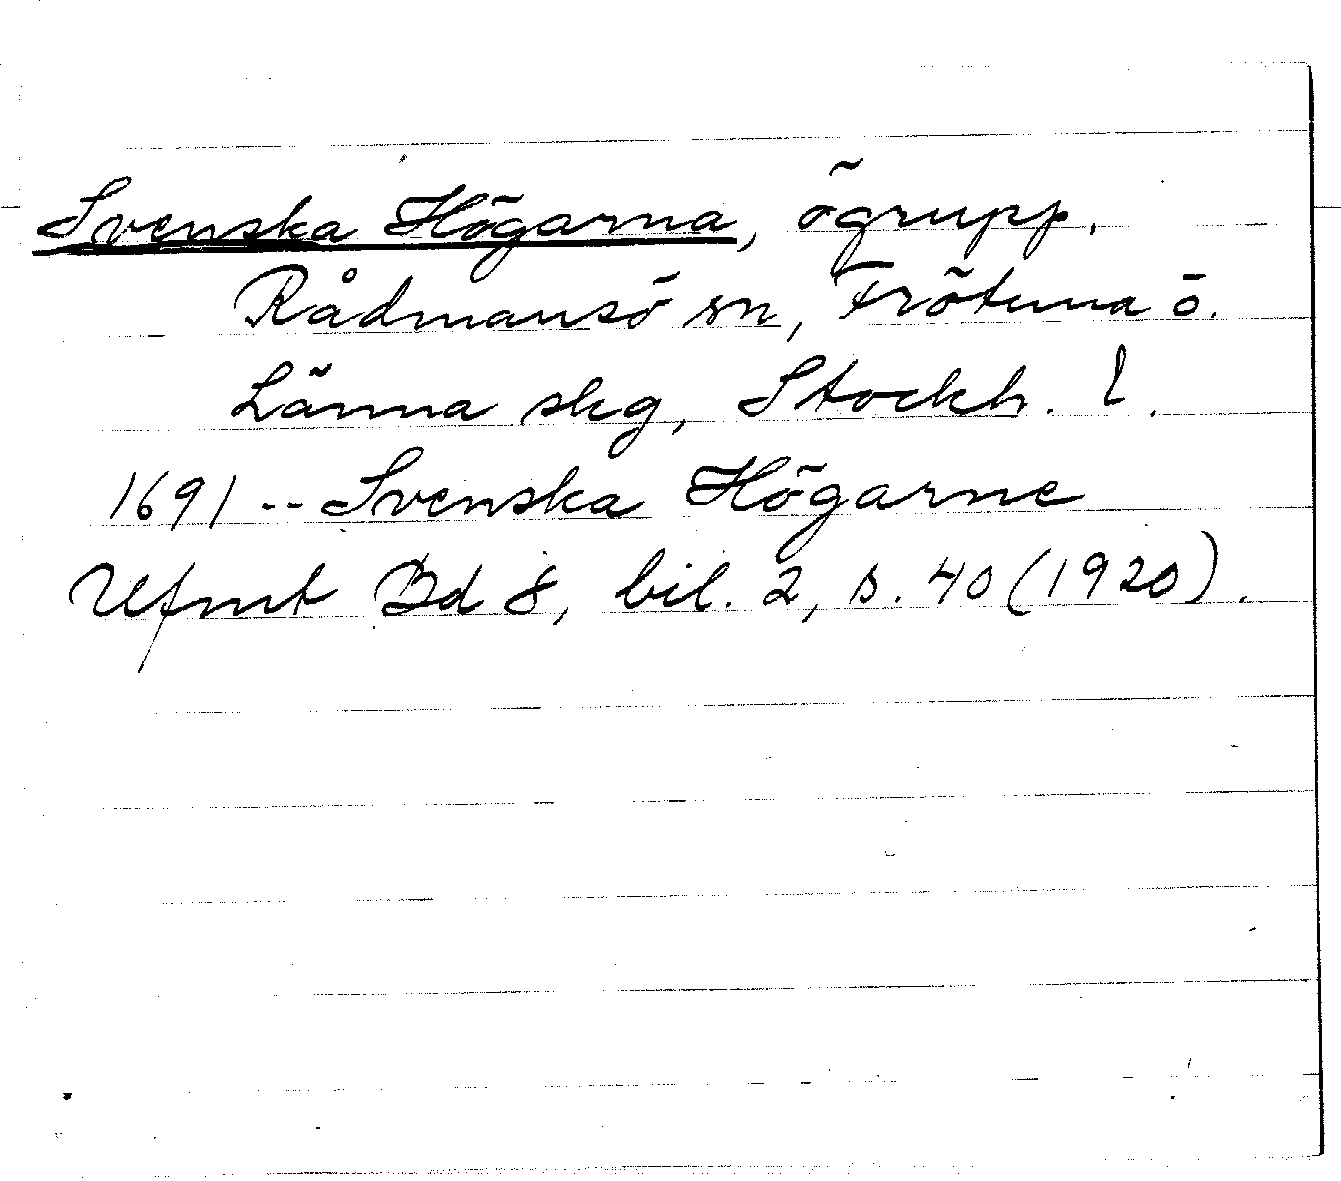 Svenska Högarna, ögrupp.
Rådmansö sn, Frötuna o.
Länna skg, Stockh. l.
1691 -- Svenska Högarne
Ufmt Bd 8, bil. 2, s. 40 (1920).